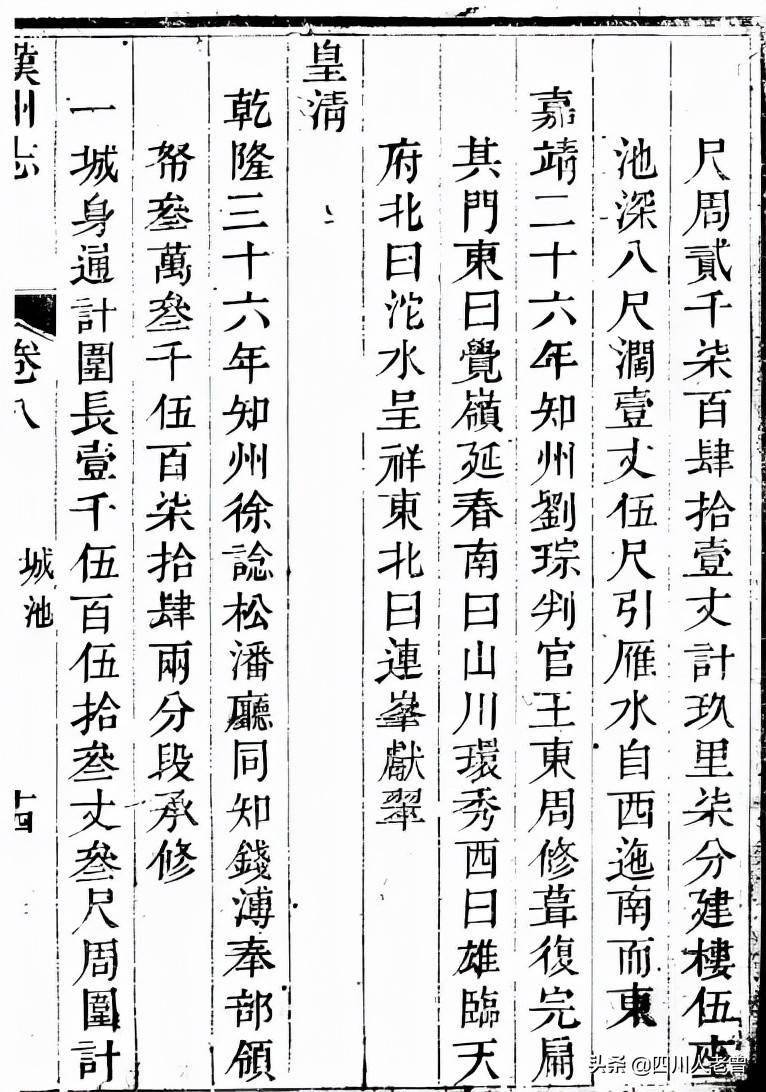 尺周貳千柒百肆拾壹丈計玖里柒分建樓伍座
池深八尺濶壹丈伍尺引雁水自西迤南而東
嘉靖二十六年知州劉琮判官王東周修葺復完扁
其門東曰覺嶺延春南曰山川環秀西曰雄臨天
府北曰沱水呈祥東北曰連峯獻翠
皇清
乾隆三十六年知州徐諗松潘廳同知錢溥奉部領
帑叄萬叄千伍百柒拾肆兩分段承修
一城身通計圍長壹千伍百伍拾叄丈叄尺周圍計
漢州志
卷八
城池
十四
头条 @四川人老曾